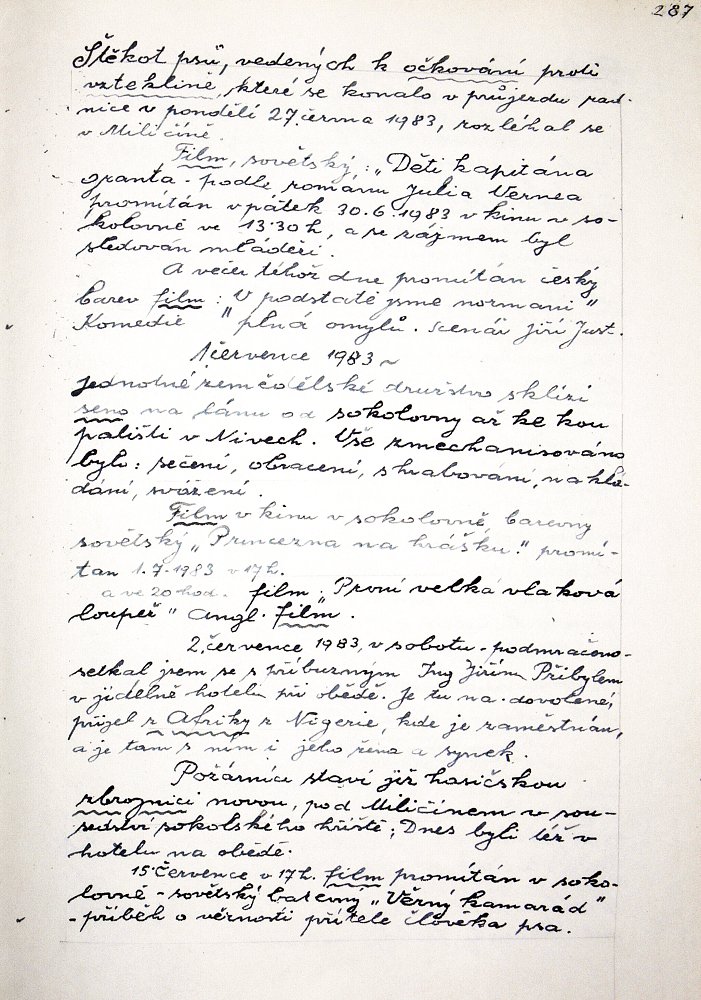 287
Štěkot psů, vedených k očkování proti
vzteklině, které se konalo v průjezdu rad-
nice v pondělí 27. června 1983, rozléhal se
v Miličíně.
Film, sovětský: „Děti kapitána
granta - podle románu Julia Vernea
promítán v pátek 30.6.1983 v kinu v so-
kolovně ve 13.30 h, a se zájmem byl
sledován mládeží.
A večer téhož dne promítán český
barev film: V podstatě jsme normani"
Komedie " plná omylů. scenář Jiří Just.
1 července 1983
Jednotné zemědělské družstvo sklízí
seno na lánu od sokolovny až ke kou
pališti v Nivech. Vše zmechanisováno
bylo: sečení, obracení, shrabování, naklá-
dání, svážení.
Film v kinu v sokolovně, barevny
sovětský „Princezna na hrášku." promí-
tan 1.7.1983 v 17h.
a ve 20 hod. film „První velká vlaková
loupež" angl. film.
2. července 1983, v sobotu - podmračeno-
setkal jsem se s příbuzným Ing Jiřím Přibylem
v jídelně hotelu při obědě. Je tu na dovolené,
přijel z Afriky z Nigerie, kde je zaměstnán,
a je tam s ním i jeho žena a synek.
Požárníci staví již hasičskou
zbrojnici novou, pod Miličínem v sou-
sedství sokolského hřiště; Dnes byli též v
hotelu na obědě.
15 Července v 17h. film promítán v soko-
lovně - sovětský barevný „Věrný kamarád"
- příběh o věrnosti přítele člověka psa.